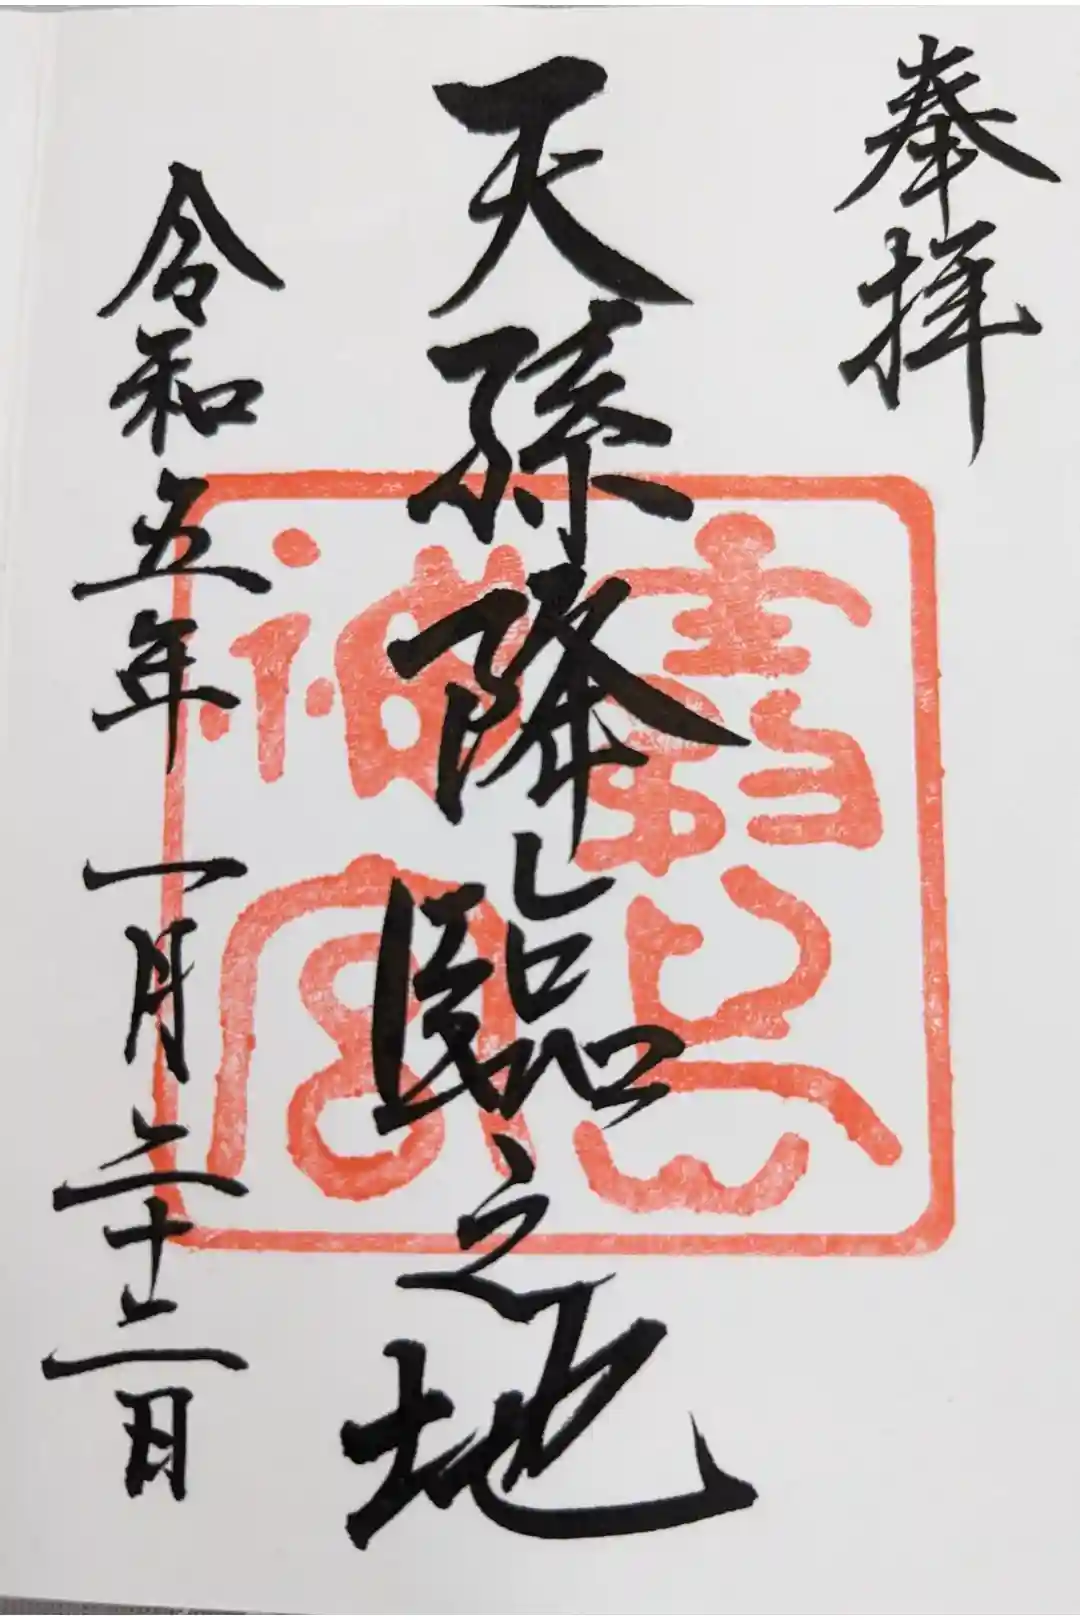 奉拝
天孫降臨之地
令和五年 一月二十二日